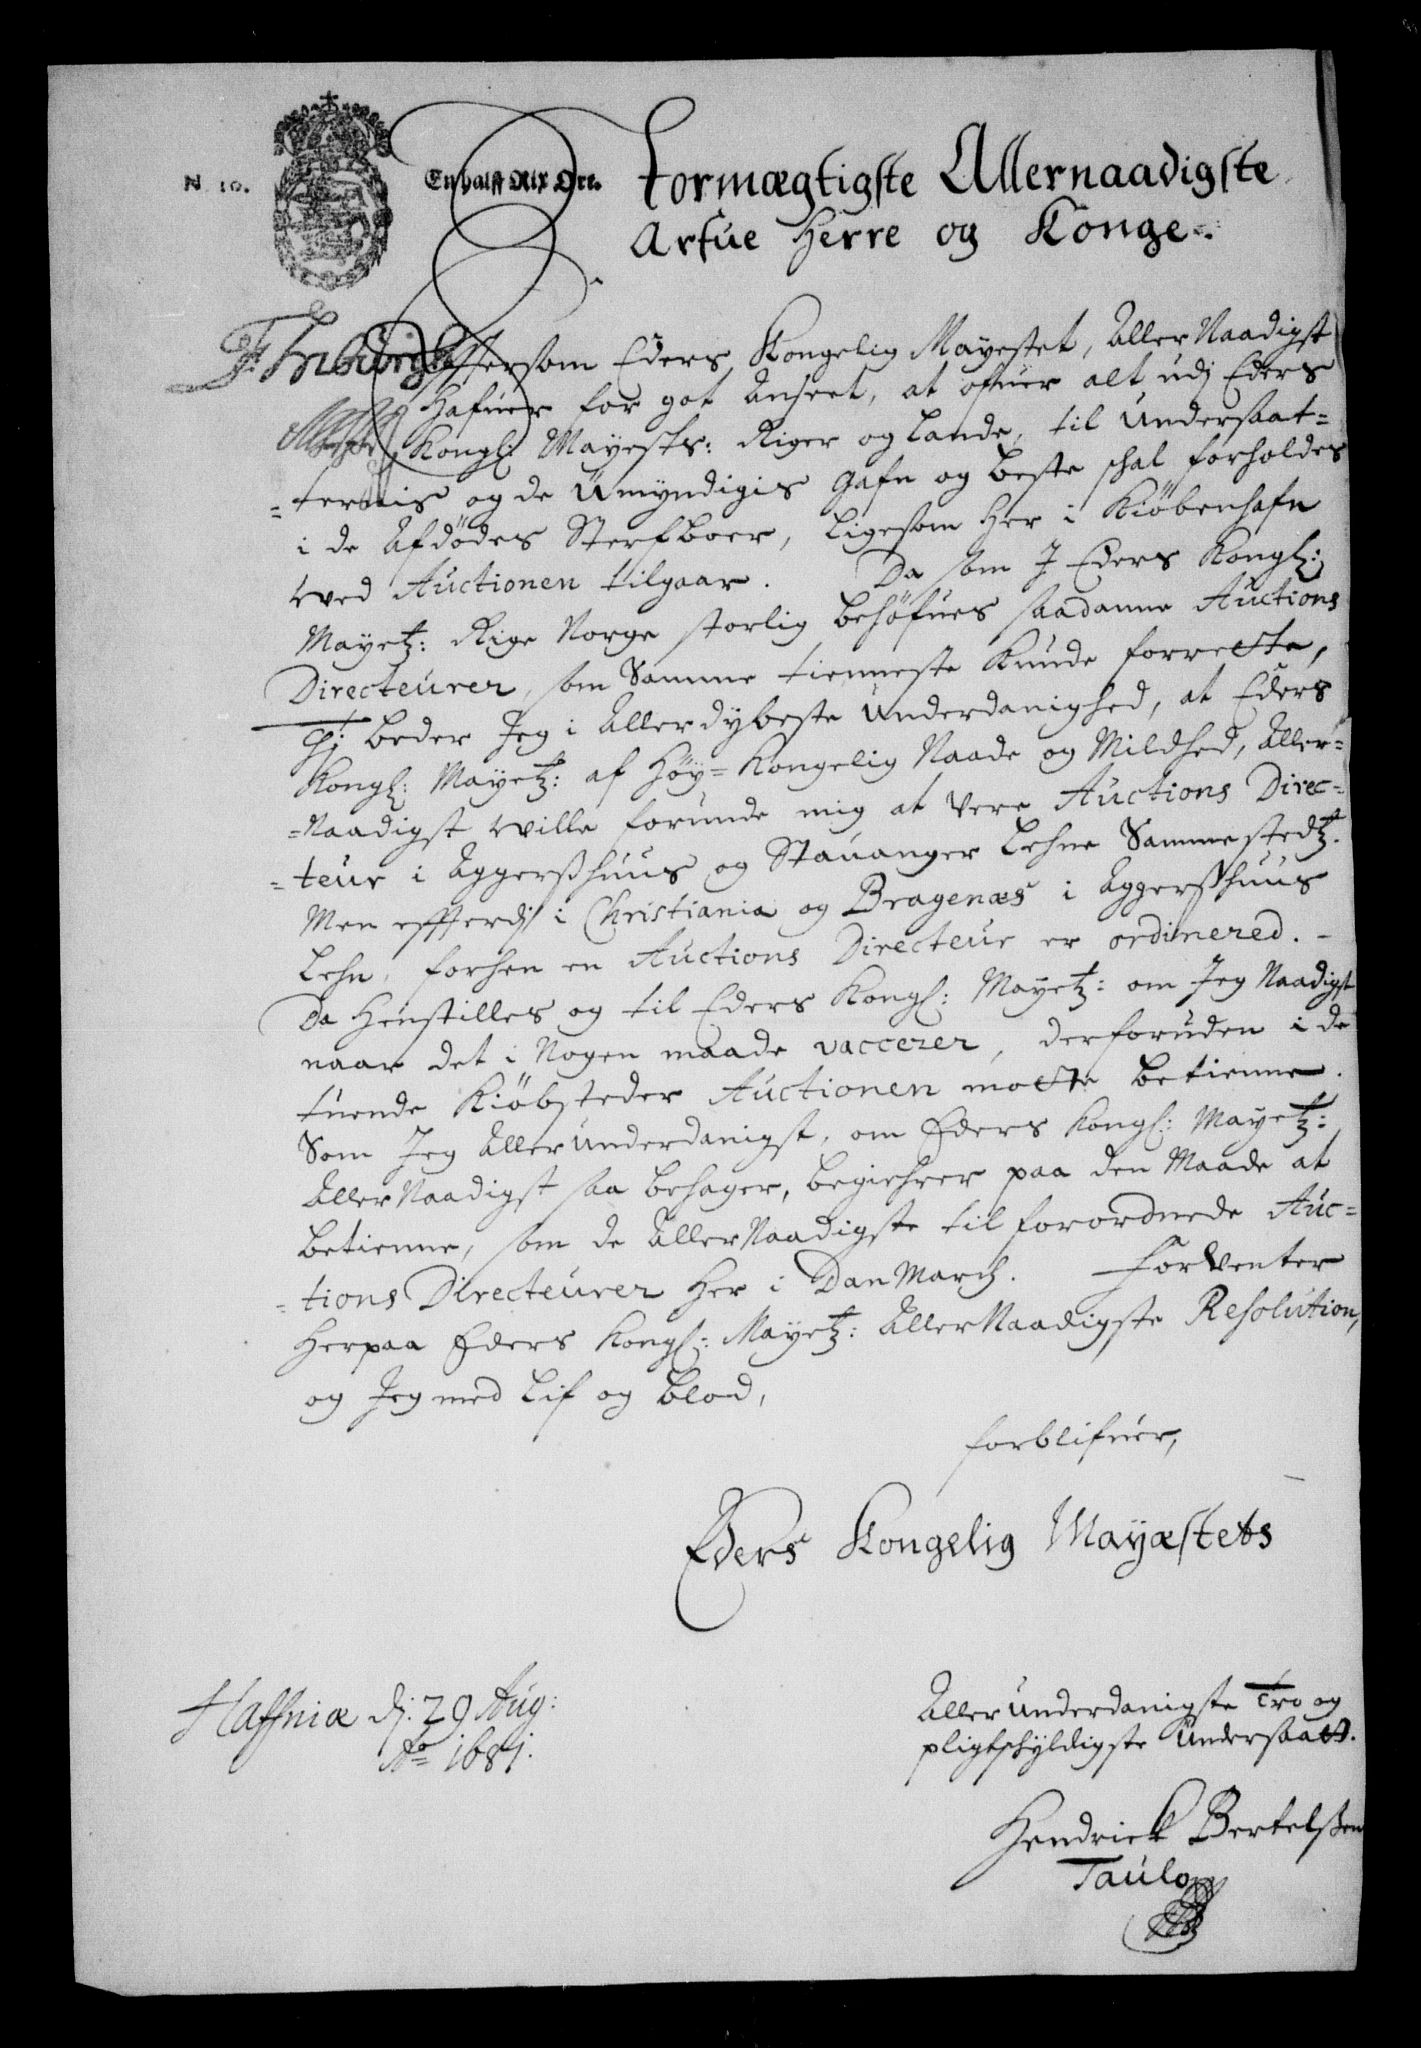 N 10.
En halff Rix Ort.
Stormægtigste Allernaadigste
Arfue Herre og Konge.
Effersom Eders Kongelig Mayestet, AllerNaadigst
Hafuer for got Anseet, at ofuer alt udj Eders
Kongl: Mayests: Riger og Lande, til Undersaat=
=ternis og de Umyndigis Gafn og beste schal forholdes
i de Afdödes Sterfboer, Ligesom Her i Kiöbenhafn
wed Auctionen tilgaar. Da som J Eders Kongl:
Mayetz: Rige Norge storlig behöfues saadanne Auctions
Directeurer, som Samme tienneste kunde forrette,
Thj beder Jeg i Allerdybeste Underdanighed, at Eders
Kongl: Mayetz: af Höy=Kongelig Naade og Mildhed, Aller=
=Naadigst wille forunde mig at vere Auctions Direc=
=teur i Aggerßhuus og Stauanger Lehne Sammestedtz.
Men effterdj i Christiania og Bragenæs i Aggerßhuus
Lehn, forhen en Auctions Directeur er ordinered. -
Da Henstilles og til Eders Kongl: Mayetz: om Jeg Naadigst
naar det i Nogen maade vaccerer, derforuden i de
tuende Kiöbsteder Auctionen motte betienne.
Som Jeg Allerunderdanigst, om Eders Kongl: Mayetz:
AllerNaadigst saa behager, begiehrer paa den Maade at
betienne, som de AllerNaadigste tilforordnede Auc=
=tions Directeurer Her i DanMarch. Forventer
Herpaa Eders Kongl: Mayetz: AllerNaadigste Resolution,
og Jeg med Lif og blod,
forblifuer,
Eders Kongelig Mayæstets
Haffniæ dj: 29 Aug:
Ao 1681.
Allerunderdanigste Tro og
pligtschyldigste Undersaatt.
Hendrick Bertelßen
Taulo